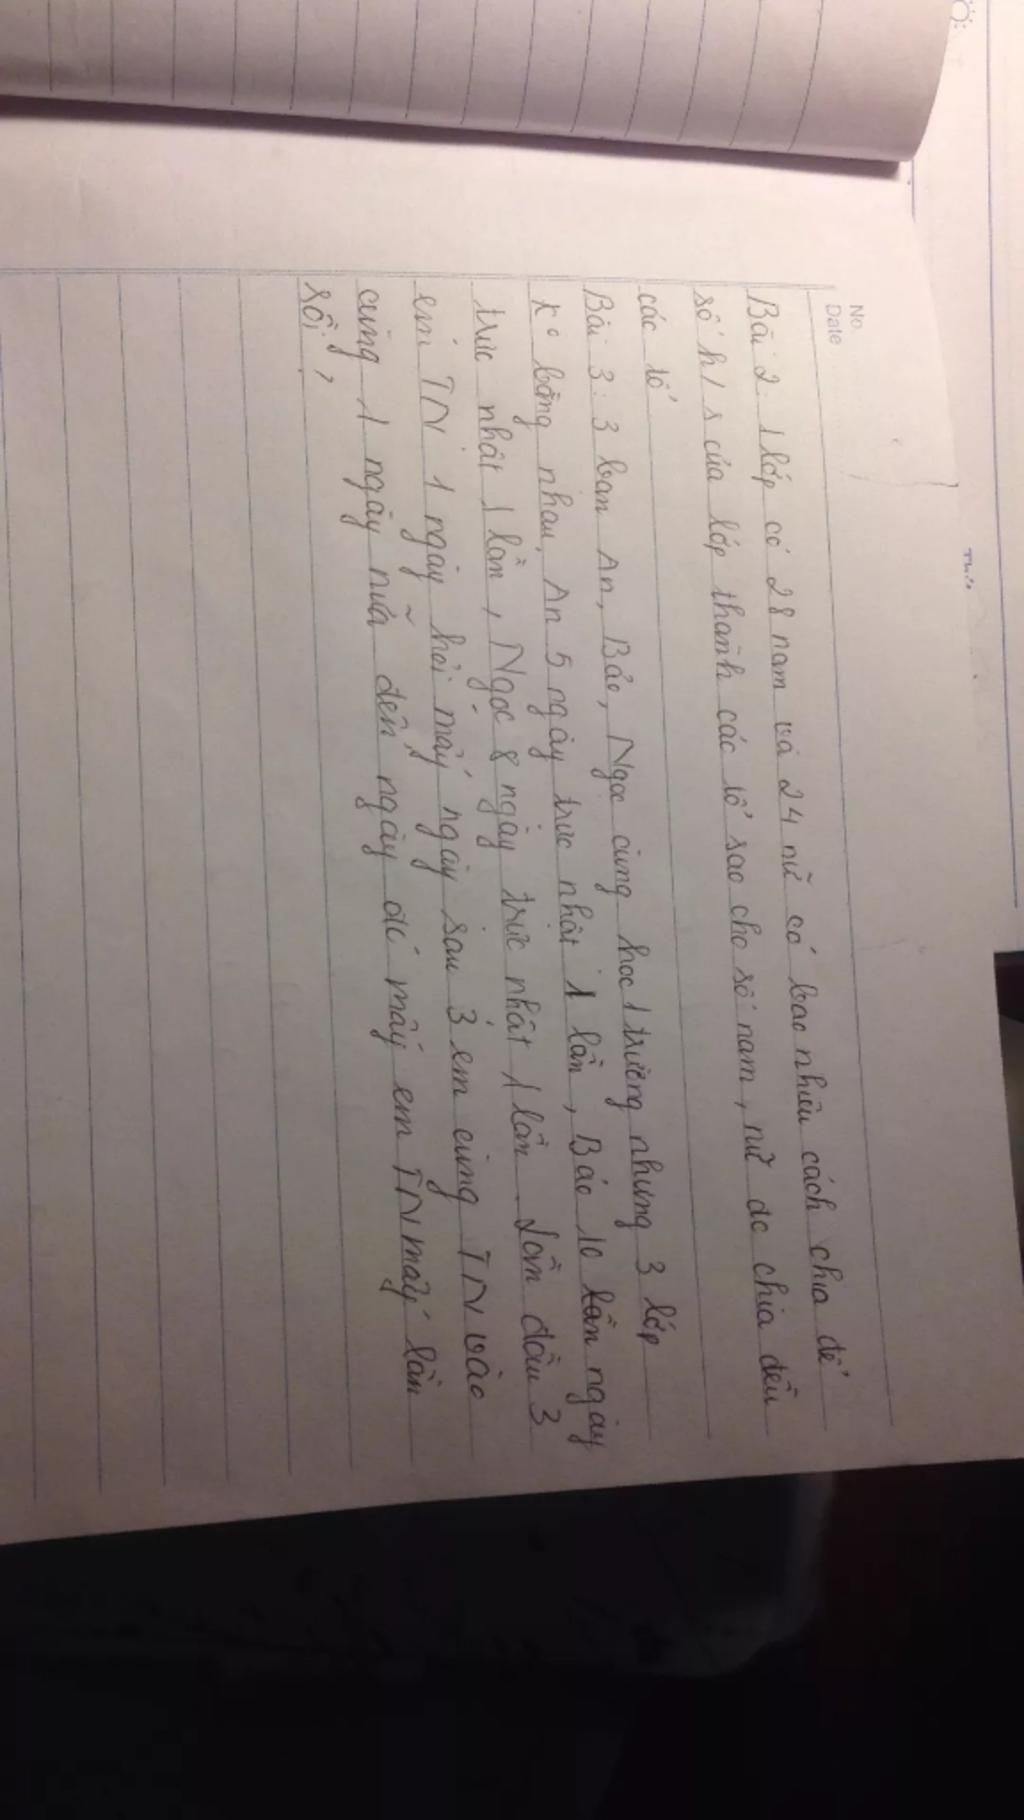 No.
Date
Bài 2: 1 lớp có 28 nam và 24 nữ có bao nhiêu cách chia để
số h/s của lớp thành các tổ sao cho số nam, nữ dc chia đều
các tổ
Bài 3: 3 bạn An, Bảo, Ngọc cùng học 1 trường nhưng 3 lớp
k° bằng nhau, An 5 ngày trực nhật 1 lần, Bảo 10 lần ngày
trực nhật 1 lần, Ngọc 8 ngày trực nhật 1 lần. Lần đầu 3
em TN 1 ngày hỏi mấy ngày sau 3 em cùng TN vào
cùng 1 ngày nữa đến ngày đó mấy em TN mấy lần
rồi?